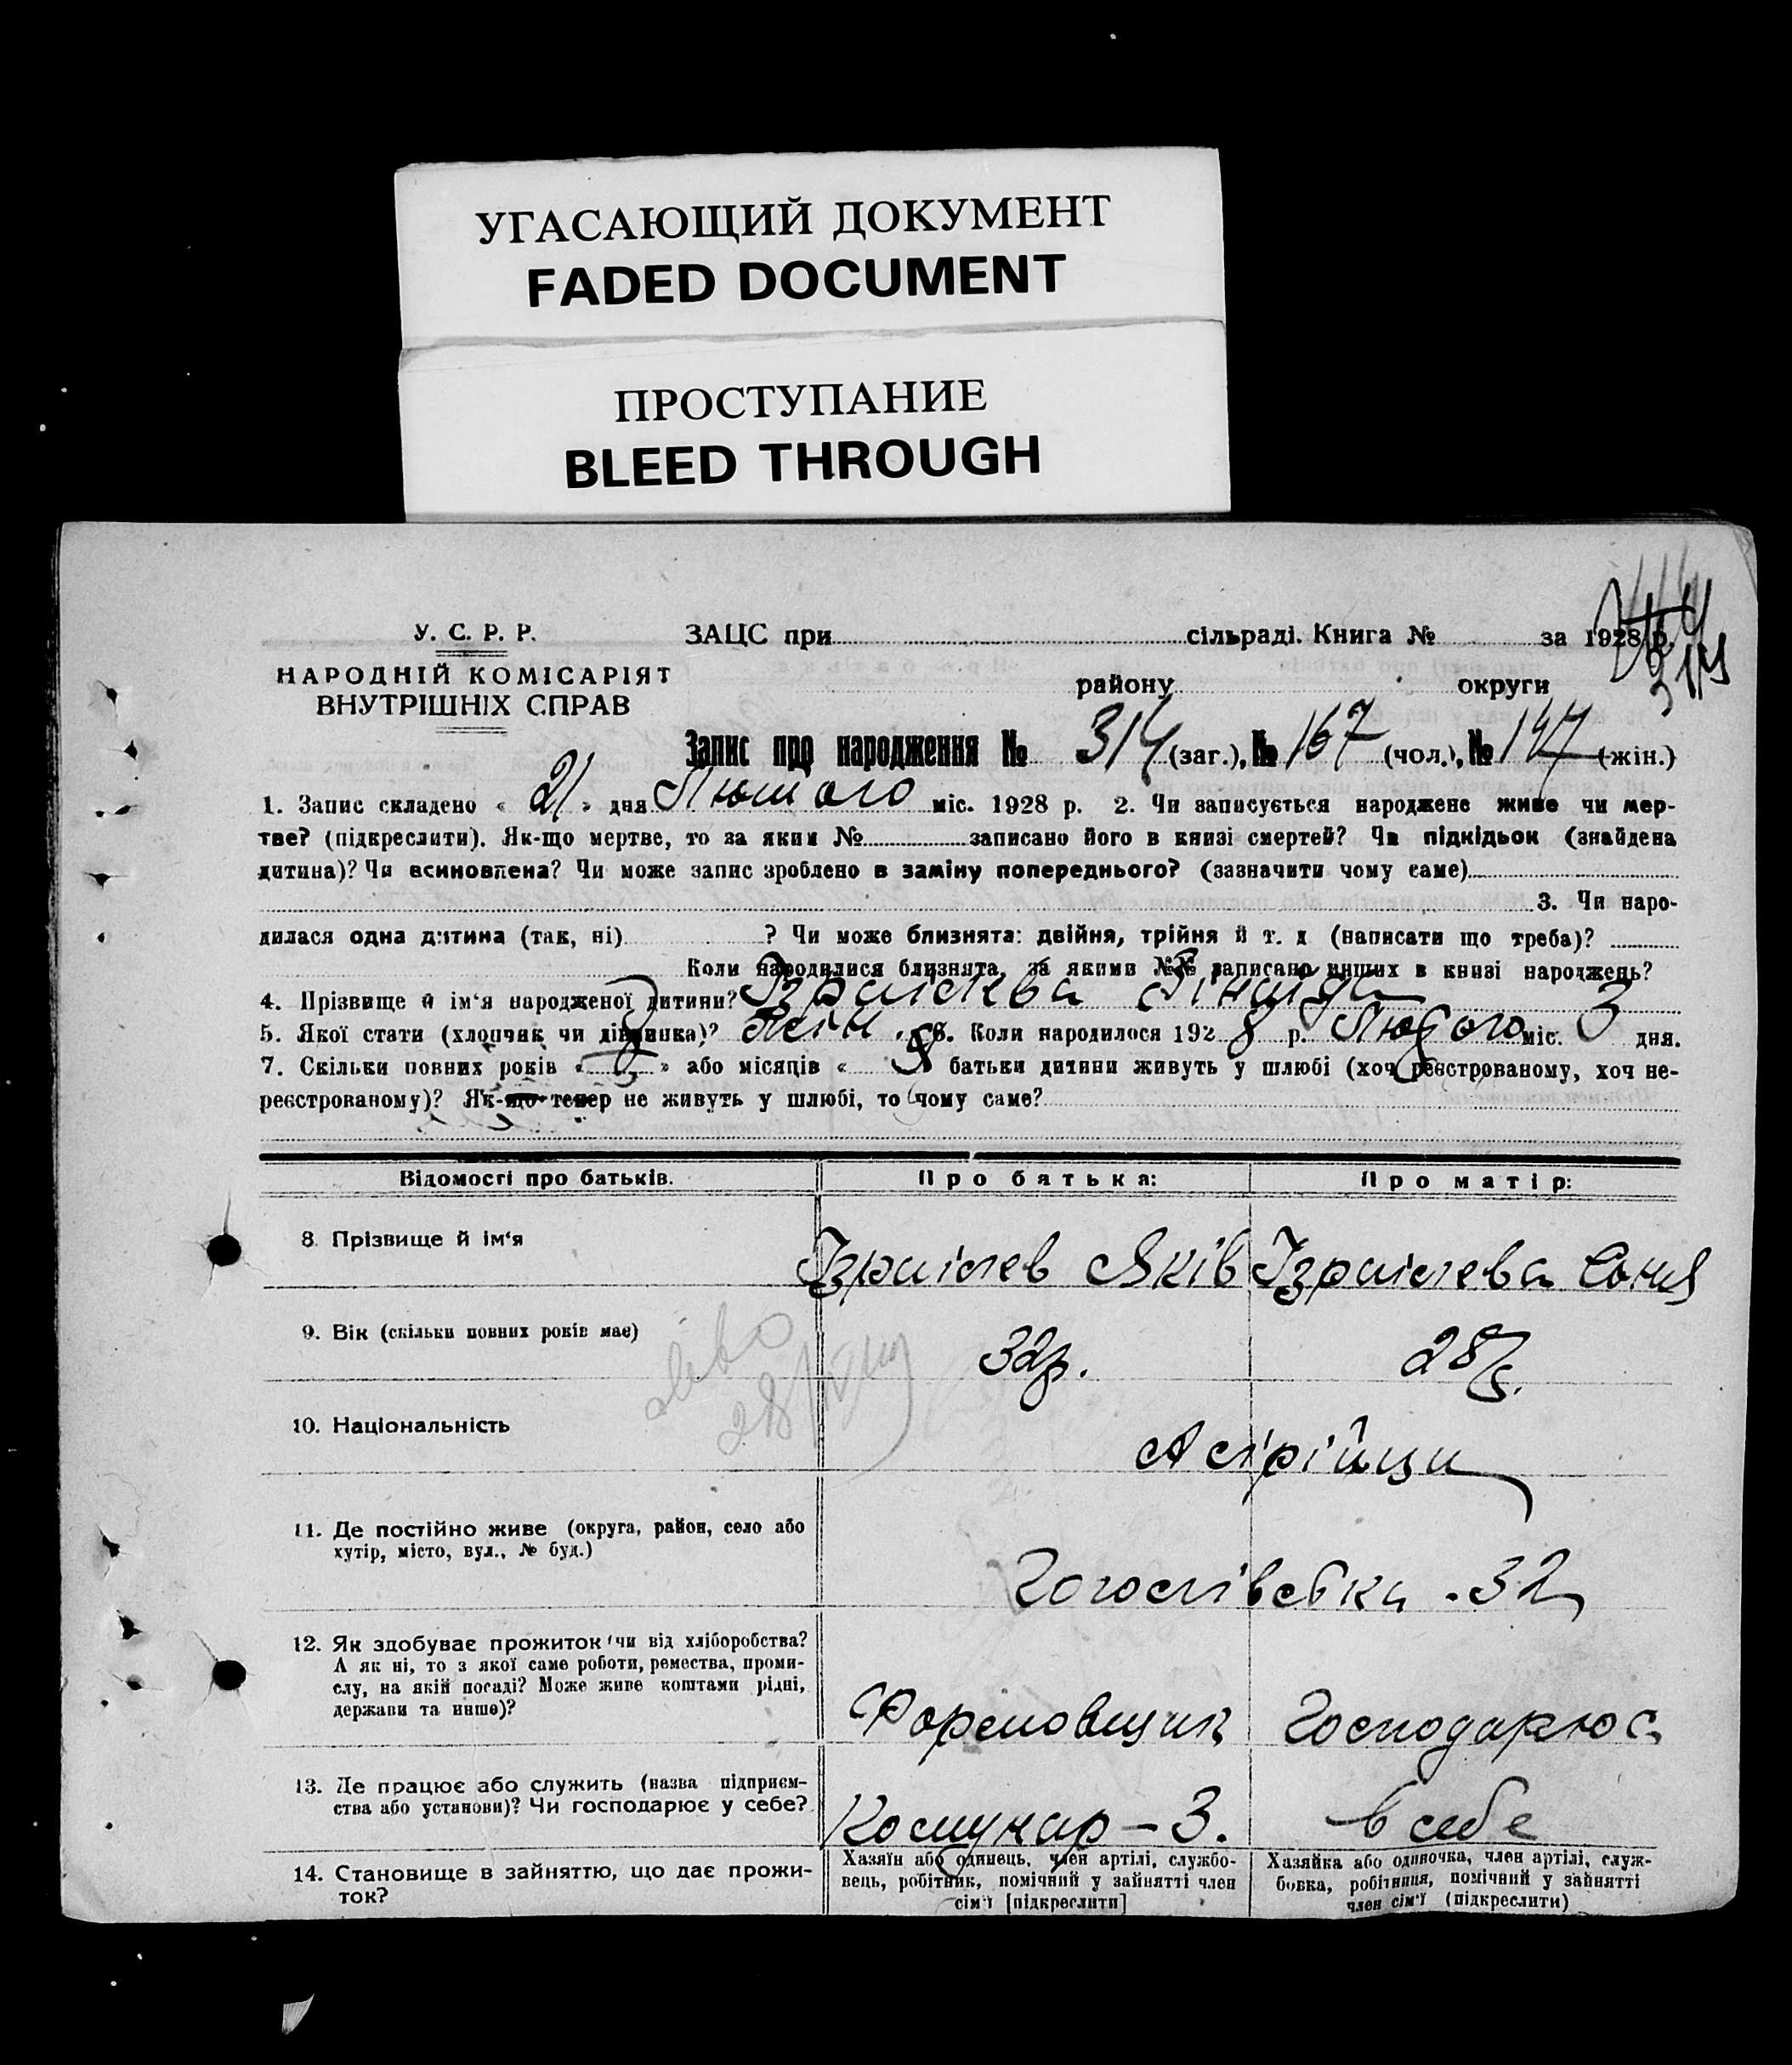 УГАСАЮЩИЙ ДОКУМЕНТ
FADED DOCUMENT
ПРОСТУПАНИЕ
BLEED THROUGH
У. С. Р. Р.
НАРОДНІЙ КОМІСАРІЯТ
ВНУТРІШНІХ СПРАВ
ЗАЦС при сільраді. Книга № за 1928 р.
району округи
Запис про народження № 314 (заг.), № 167 (чол.), № 147 (жін.)
1. Запис складено « 21 » дня Лютого міс. 1928 р. 2. Чи записується народжене живе чи мер-
тве? (підкреслити). Як-що мертве, то за яким № записано його в книзі смертей? Чи підкідьок (знайдена
дитина)? Чи всиновлена? Чи може запис зроблено в заміну попереднього? (зазначити чому саме)
3. Чи наро-
дилася одна дитина (так, ні) ? Чи може близнята: двійня, трійня й т. д (написати що треба)?
Коли народилися близнята, за якими №№ записано инших в книзі народжень?
4. Прізвище й ім'я народженої дитини? Ізраілева Зінаіда
5. Якої статі (хлопчик чи дівчинка)? жін. 6. Коли народилося 1928 р. Лютого міс. 3 дня.
7. Скільки повних років « » або місяців « батьки дитини живуть у шлюбі (хоч реєстрованому, хоч не-
реєстрованому)? Як-що тепер не живуть у шлюбі, то чому саме?
Відомості про батьків. Про батька: Про матір:
8. Прізвище й ім'я Ізраілев Яків Ізраілева Соня
9. Вік (скільки повних років має) 32р. 28р.
10. Національність Асірійци
11. Де постійно живе (округа, район, село або
хутір, місто, вул., № буд.)
Гоголівська - 32
12. Як здобуває прожиток чи від хліборобства?
А як ні, то з якої саме роботи, ремества, проми-
слу, на якій посаді? Може живе коштами рідні,
держави та инше)?
Формовщик Господарює
13. Де працює або служить (назва підприєм-
ства або установи)? Чи господарює у себе?
Комунар - 3. в себе
14. Становище в зайняттю, що дає прожи-
ток?
Хазяїн або одинець, член артілі, службо-
вець, робітник, помічний у зайнятті член
сім'ї [підкреслити]
Хазяйка або одиночка, член артілі, служ-
бовка, робітниця, помічний у зайнятті
член сім'ї (підкреслити)